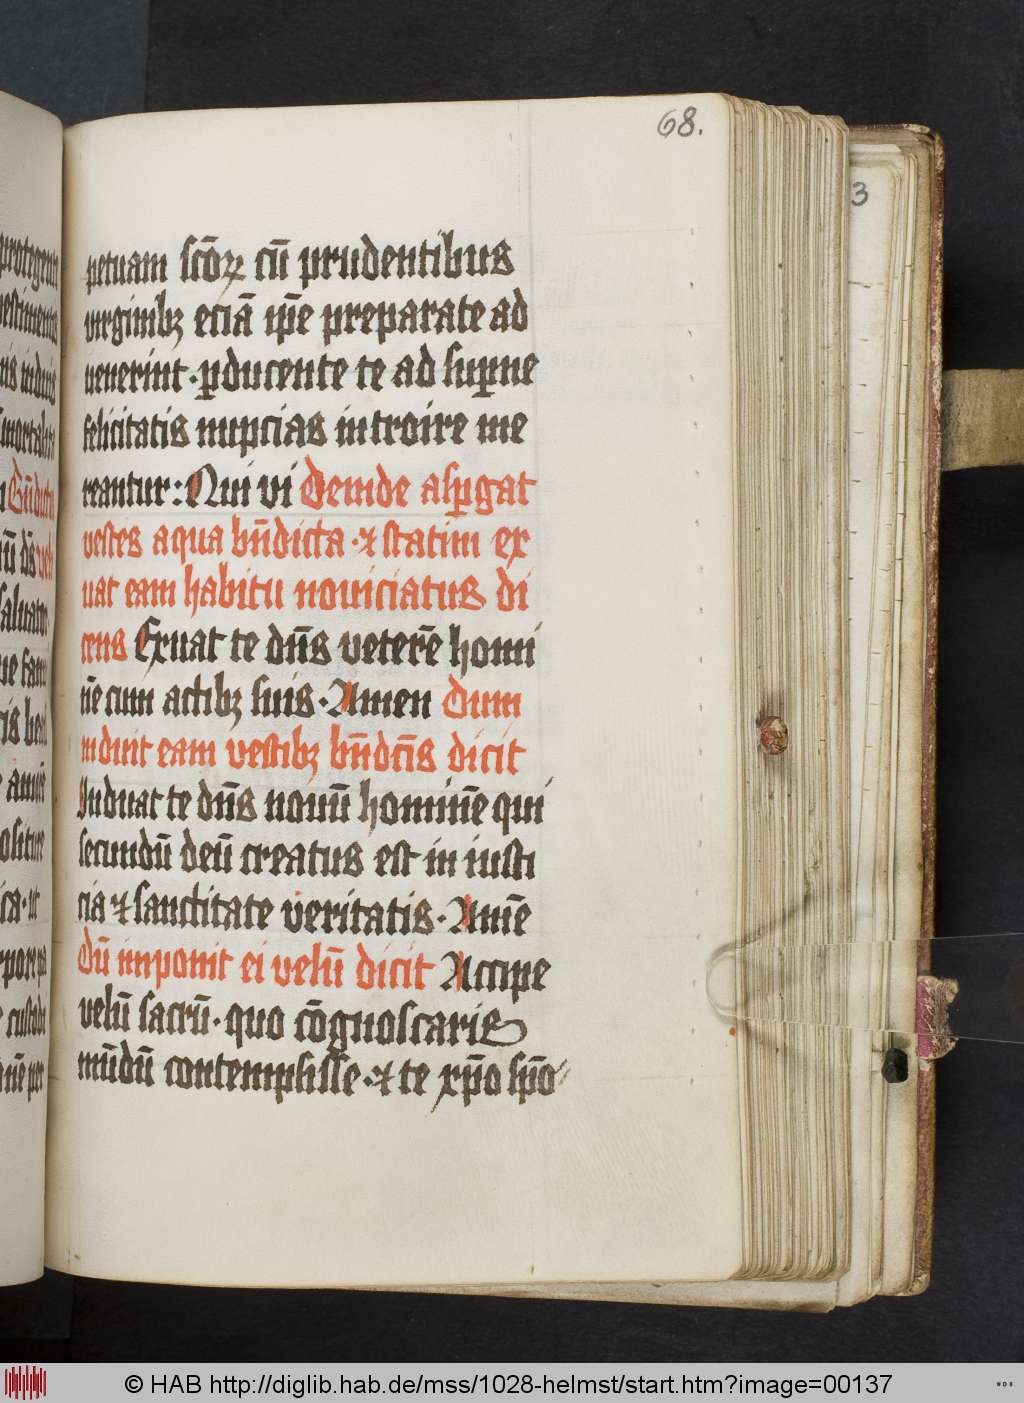 68.
3
petuam scōꝝ cū prudentibus
virginibꝫ eciā ip̄e preparate ad
uenerint · ꝑducente te ad suꝑne
felicitatis nupcias introire me
reantur : Qui vi Deinde asꝑgat
vestes aqua bn̄dicta · ⁊ statim ex
uat eam habitu nouiciatus di
cens Exuat te dn̄s veterē homi
nē cum actibꝫ suis · Amen Dum
induit eam vestibꝫ bn̄dc̄is dicit
Induat te dn̄s nouū hominē qui
secundū deū creatus est in iusti
cia ⁊ sanctitate veritatis · Amē
Dū imponit ei velū dicit Accipe
velū sacrū · quo cōgnoscaris
mūdū contempsisse · ⁊ te xp̄o sp̄o
protegente
vestimentis
© HAB http://diglib.hab.de/mss/1028-helmst/start.htm?image=00137